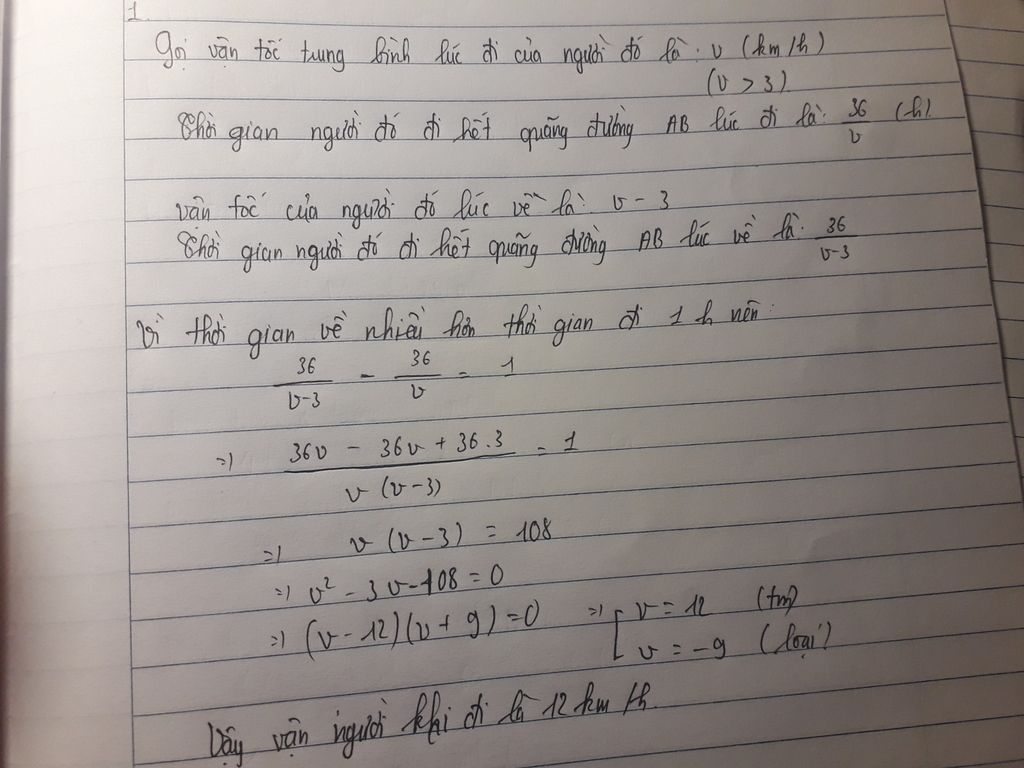 1.
Gọi vận tốc trung bình lúc đi của người đó là: v (km/h)
(v > 3)
Thời gian người đó đi hết quãng đường AB lúc đi là: 36/v (h)
vận tốc của người đó lúc về là: v - 3
Thời gian người đó đi hết quãng đường AB lúc về là: 36/(v-3)
Vì thời gian về nhiều hơn thời gian đi 1 h nên:
36/(v-3) - 36/v = 1
=) (36v - 36v + 36.3)/(v (v-3)) = 1
=) v (v-3) = 108
=) v² - 3v - 108 = 0
=) (v-12)(v+9)=0 =) [ v = 12 (tm)
v = -9 (loại)
Vậy vận người khi đi là 12 km/h.